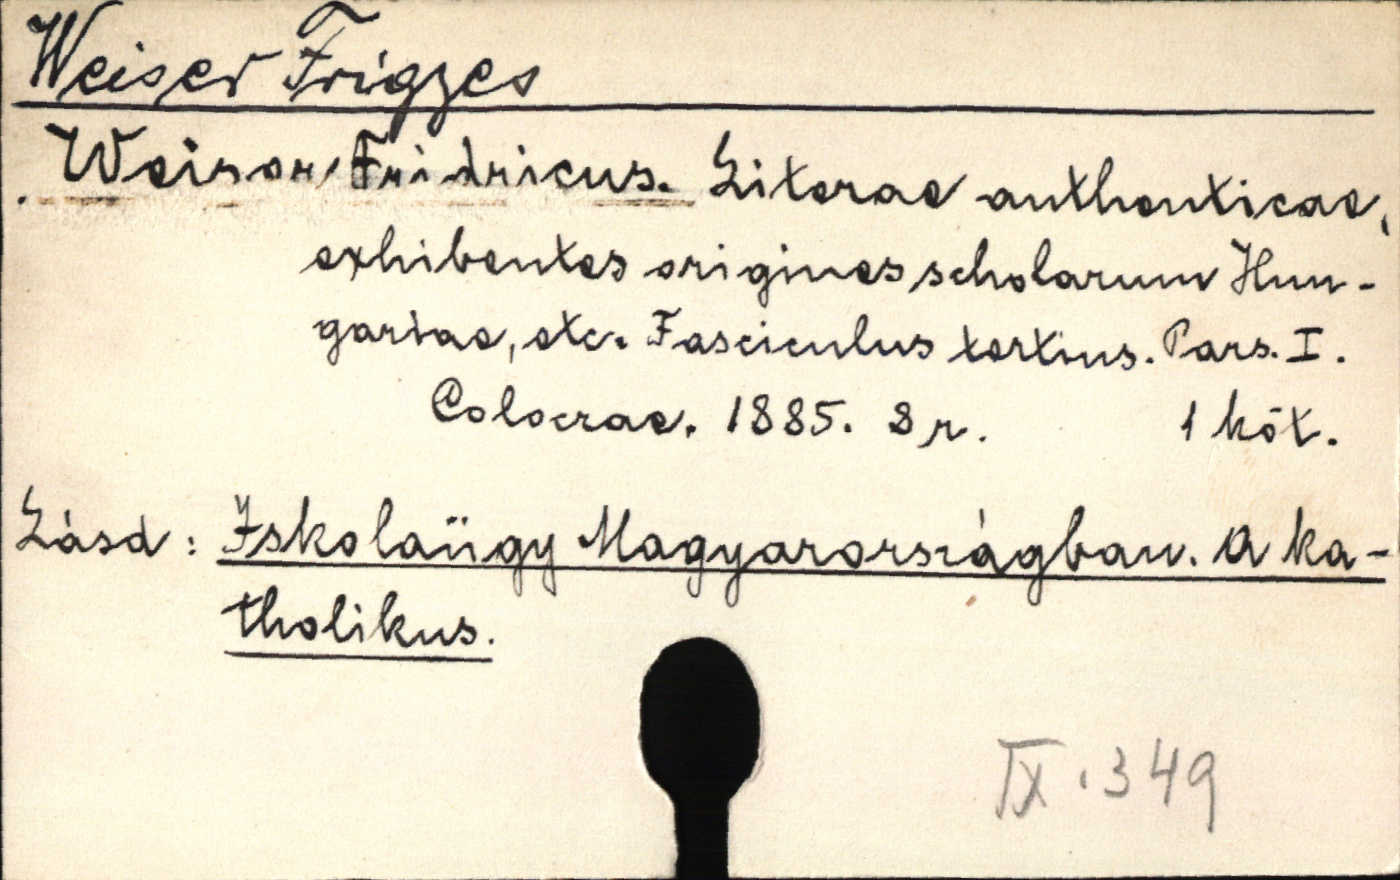 Weiser Frigyes
Weiser, Fridricus. Literae authenticae,
exhibentes origines scholarum Hun-
gariae, etc. Fasciculus tertius. Pars. I.
Coloczae. 1885. 8 r. 1 köt.
Lásd: Iskolaügy Magyarországban. A ka-
tholikus.
IX. 349